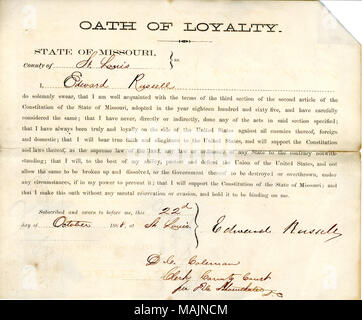 OATH OF LOYALTY.
STATE OF MISSOURI,
County of St Louis } ss.
I, Edward Russell
do solemnly swear, that I am well acquainted with the terms of the third section of the second article of the
Constitution of the State of Missouri, adopted in the year eighteen hundred and sixty five, and have carefully
considered the same; that I have never, directly or indirectly, done any of the acts in said section specified;
that I have always been truly and loyally on the side of the United States against all enemies thereof, foreign
and domestic; that I will bear true faith and allegiance to the United States, and will support the Constitution
and laws thereof, as the supreme law of the land, any law or ordinance of any State to the contrary notwith-
standing; that I will, to the best of my ability, protect and defend the Union of the United States, and not
allow the same to be broken up and dissolved, or the Government thereof to be destroyed or overthrown, under
any circumstances, if in my power to prevent it; that I will support the Constitution of the State of Missouri; and
that I make this oath without any mental reservation or evasion, and hold it to be binding on me.
Subscribed and sworn to before me, this 22d
day of October 186 at St Louis. } Edward Russell
Coleman
Clerk County Court
alamy
Image ID: MAJNCM
www.alamy.com